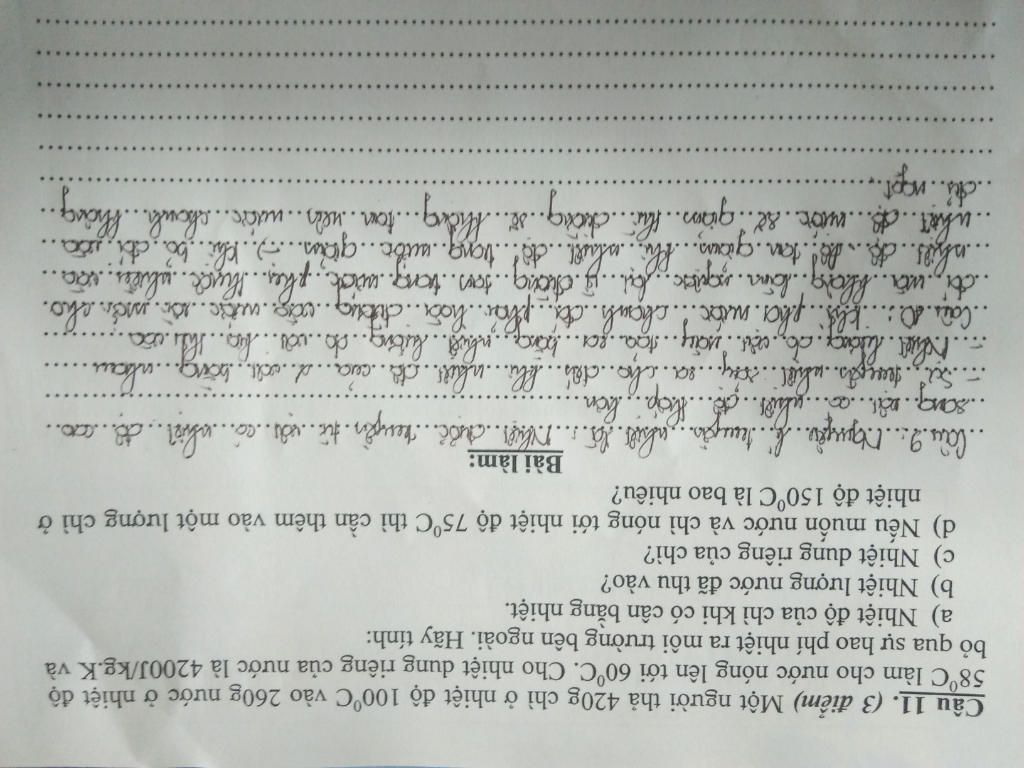 Câu 11. (3 điểm) Một người thả 420g chì ở nhiệt độ 100⁰C vào 260g nước ở nhiệt độ
58⁰C làm cho nước nóng lên tới 60⁰C. Cho nhiệt dung riêng của nước là 4200J/kg.K và
bỏ qua sự hao phí nhiệt ra môi trường bên ngoài. Hãy tính:
a) Nhiệt độ của chì khi có cân bằng nhiệt.
b) Nhiệt lượng nước đã thu vào?
c) Nhiệt dung riêng của chì?
d) Nếu muốn nước và chì nóng tới nhiệt độ 75⁰C thì cần thêm vào một lượng chì ở
nhiệt độ 150⁰C là bao nhiêu?
Bài làm:
Câu 9: Nguyên lí truyền nhiệt là: Nhiệt được truyền từ vật có nhiệt độ cao
sang vật có nhiệt độ thấp hơn
- Sự truyền nhiệt xảy ra cho đến khi nhiệt độ của 2 vật bằng nhau
- Nhiệt lượng do vật này tỏa ra bằng nhiệt lượng do vật kia thu vào
Câu 10: Khi pha nước chanh đá phải hòa đường vào nước rồi mới cho
đá mà không làm ngược lại vì đường tan trong nước phụ thuộc nhiều vào
nhiệt độ, độ tan giảm khi nhiệt độ trong nước giảm => khi bỏ đá vào
nhiệt độ nước sẽ giảm thì đường sẽ không tan nên nước chanh không
ngọt